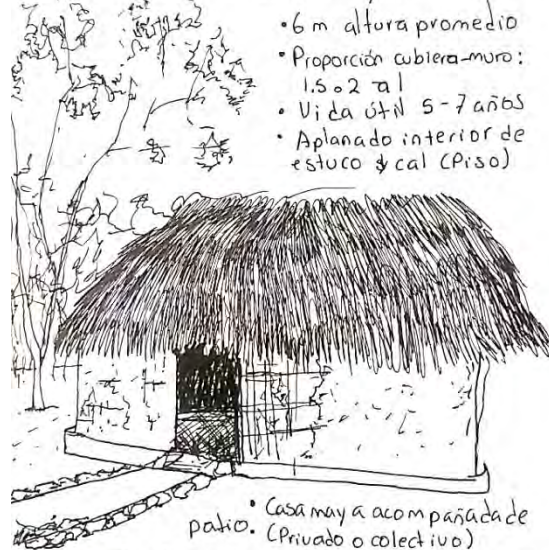 • 6 m altura promedio
• Proporción cubiera-muro:
1.5 o 2 a 1
• Vida útil 5-7 años
• Aplanado interior de
estuco y cal (Piso)
• Casa maya acompañada de
patio. (Privado o colectivo)